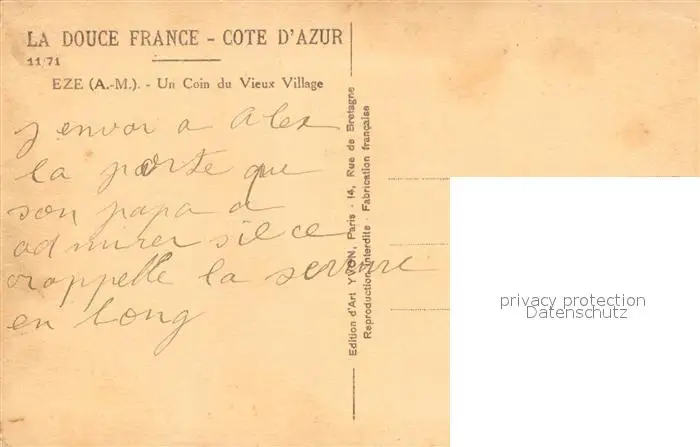 LA DOUCE FRANCE - COTE D'AZUR
11/71
EZE (A.-M.). - Un Coin du Vieux Village
j envoi a Alex
la porte que
son papa a
admirer si ce
rappelle la serrure
en long
Edition d'Art YVON, Paris - 14, Rue de Bretagne
Reproduction interdite - Fabrication française
privacy protection
Datenschutz